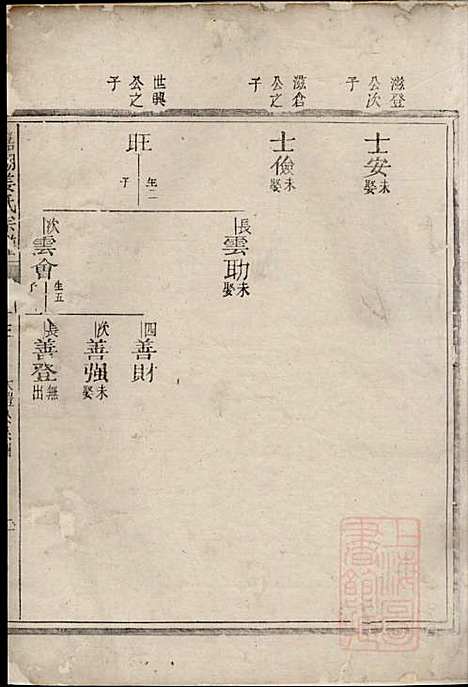 滋登公次子
滋倉公之子
世興公之子
士安 未娶
士儉 未娶
旺 生二子
長 雲助 未娶
次 雲會 生五子
四 善財
次 善强 未娶
長 善登 無出
姜氏宗譜
上海圖書館藏